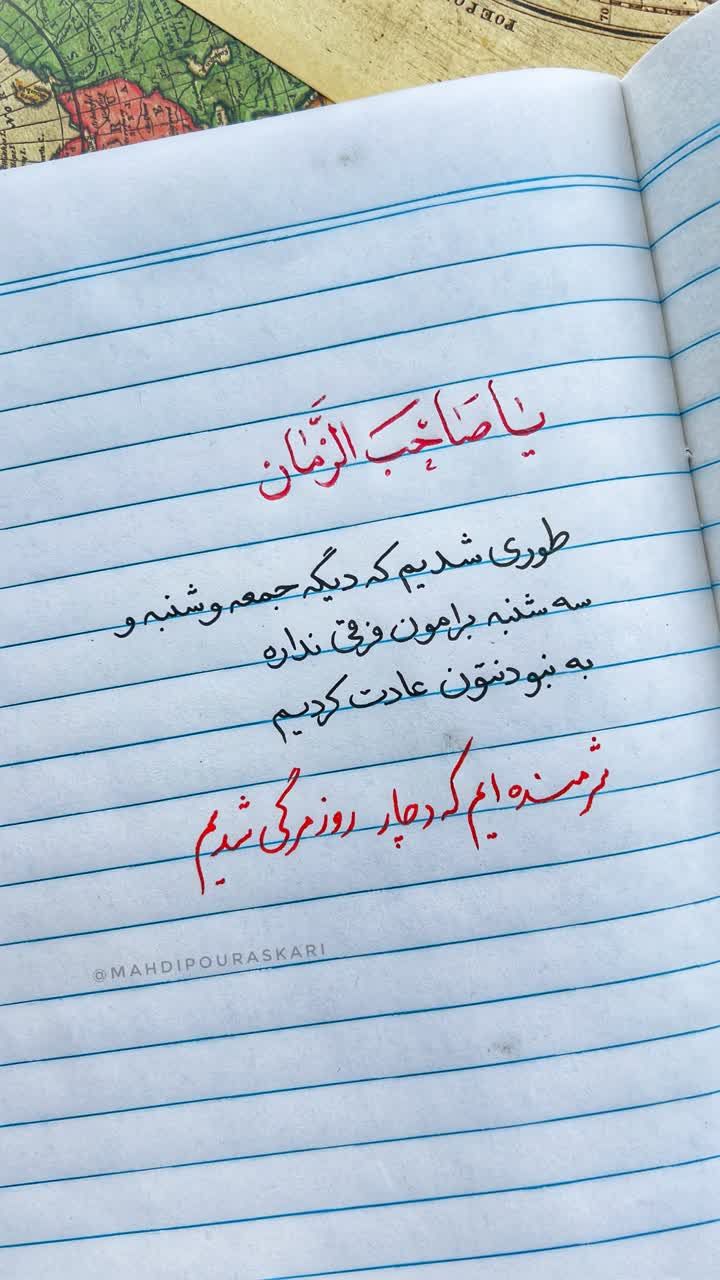 یٰا صٰاحِبَ الزَّمٰان
طوری شدیم که دیگه جمعه و شنبه و
سه شنبه برامون فرقی نداره
به نبودنتون عادت کردیم
شرمنده ایم که دچار روزمرگی شدیم
@MAHDIPOURASKARI